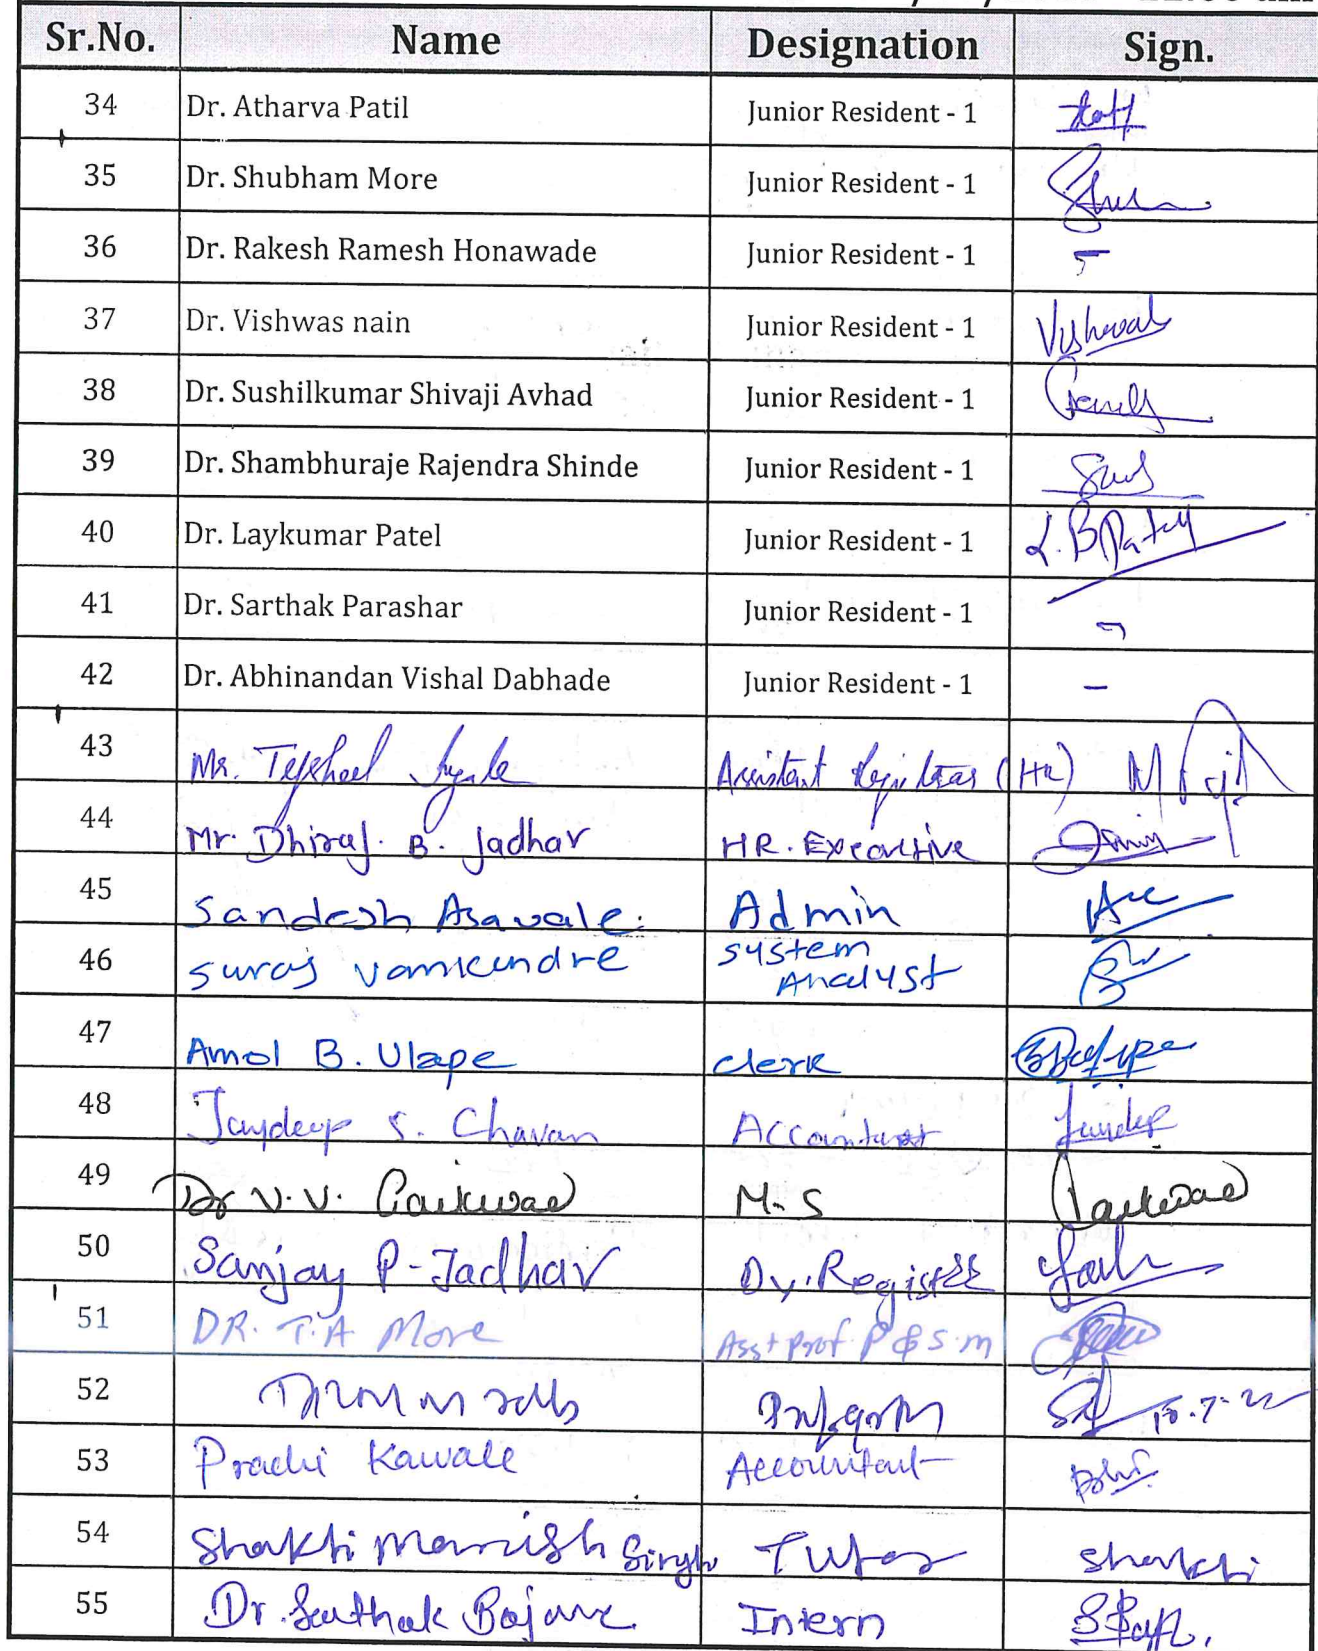 Sr.No. Name Designation Sign.
34 Dr. Atharva Patil Junior Resident - 1
35 Dr. Shubham More Junior Resident - 1
36 Dr. Rakesh Ramesh Honawade Junior Resident - 1 -
37 Dr. Vishwas nain Junior Resident - 1 Vishwas
38 Dr. Sushilkumar Shivaji Avhad Junior Resident - 1
39 Dr. Shambhuraje Rajendra Shinde Junior Resident - 1
40 Dr. Laykumar Patel Junior Resident - 1 L.B Patel
41 Dr. Sarthak Parashar Junior Resident - 1 -
42 Dr. Abhinandan Vishal Dabhade Junior Resident - 1 -
43 Mr. Assistant Registrar (HR)
44 Mr. Dhiraj. B. Jadhav HR. Executive
45 Sandesh Asavale. Admin
46 Suraj System
Analyst
47 Amol B. Ulape clerk
48 Jaydeep S. Chavan Accountant Jaydeep
49 Dr V.V. Gaikwad M.S Gaikwad
50 Sanjay P-Jadhav Dy.
51 DR. T.A More Asst Prof P & S.M
52
53 Prachi Kawale Accountant
54 Shakti Manish Singh Tutor Shakti
55 Dr. Sarthak Intern